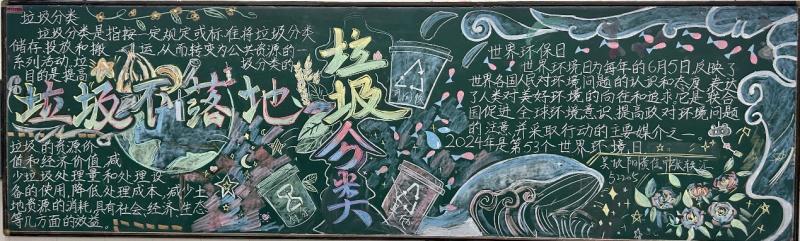 垃圾分类
垃圾分类是指按一定规定或标准将垃圾分类
储存、投放和搬运，从而转变为公共资源的一
系列活动。垃圾分类的
目的是提高
垃圾不落地
垃圾的资源价
值和经济价值，减
少垃圾处理量和处理设
备的使用，降低处理成本，减少土
地资源的消耗，具有社会、经济、生态
等几方面的效益。
垃圾分类
世界环保日
世界环境日为每年的6月5日，反映了
世界各国人民对环境问题的认识和态度，表达
了人类对美好环境的向往和追求。它是联合
国促进全球环境意识、提高政对环境问题
的注意并采取行动的主要媒介之一。
2024年是第53个世界环境日